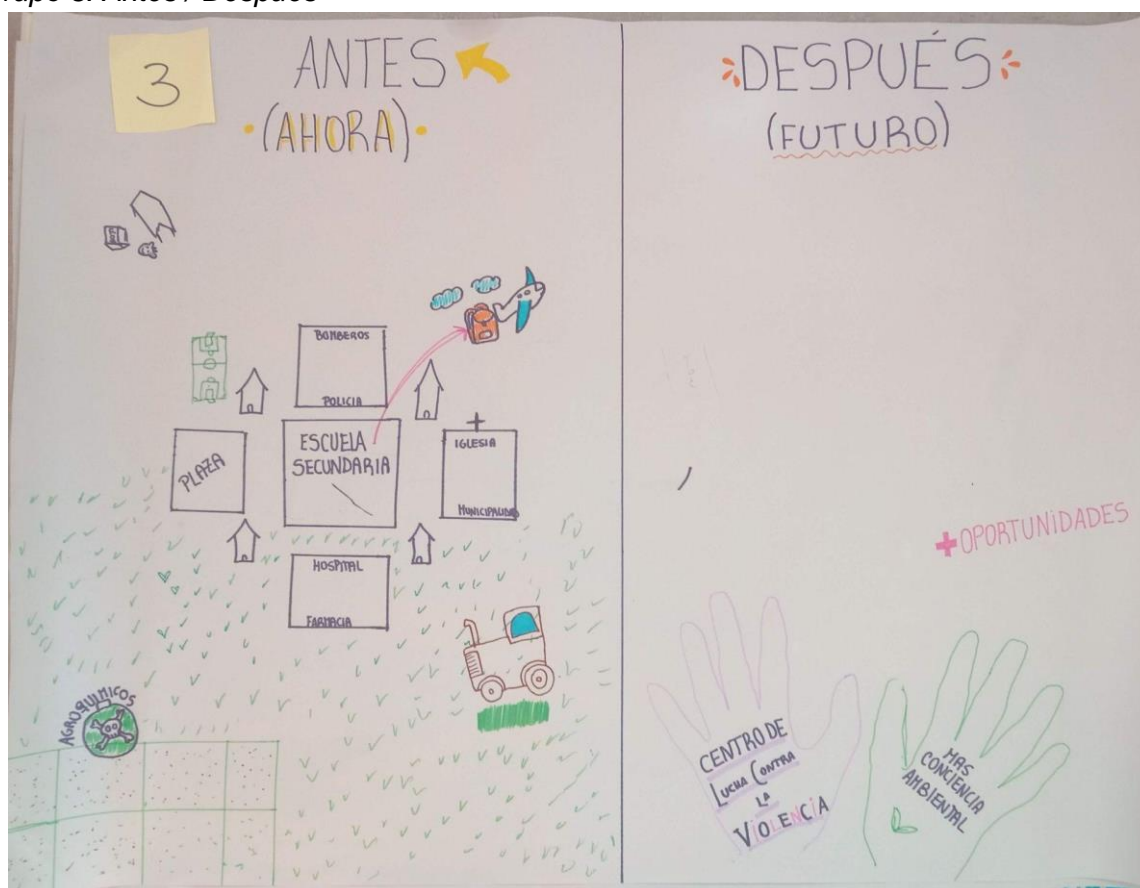 3
ANTES
(AHORA)
BOMBEROS
POLICIA
PLAZA
ESCUELA
SECUNDARIA
IGLESIA
MUNICIPALIDAD
HOSPITAL
FARMACIA
AGROQUIMICOS
DESPUÉS
(FUTURO)
+OPORTUNIDADES
CENTRO DE
LUCHA CONTRA
LA
VIOLENCIA
MAS
CONCIENCIA
AMBIENTAL